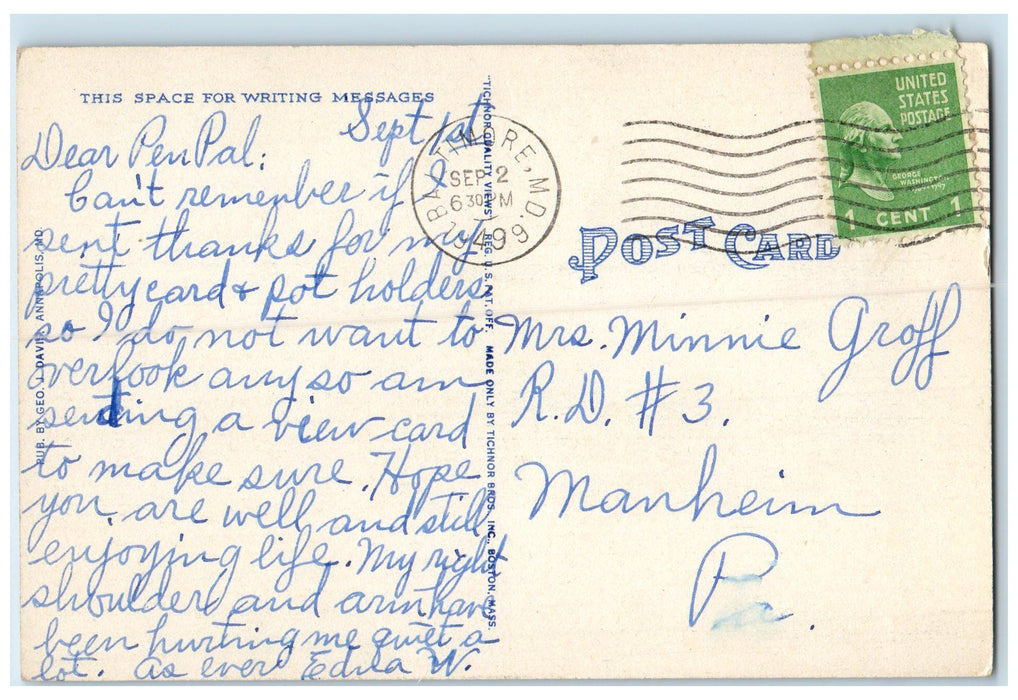 THIS SPACE FOR WRITING MESSAGES
Sept 1st
Dear Pen Pal:
Can't remember if I
sent thanks for my
pretty card & pot holders
so I do not want to
overlook any so am
sending a view card
to make sure. Hope
you, are well and still
enjoying life. My right
shoulder and arm have
been hurting me quiet a
lot. As ever Edna W.
PUB. BY GEO. J. DAVIS, ANNAPOLIS, MD.
"TICHNOR QUALITY VIEWS" REG. U. S. PAT. OFF. MADE ONLY BY TICHNOR BROS., INC., BOSTON, MASS.
BALTIMORE, MD.
SEP 2
6 30 PM
1949
UNITED
STATES
POSTAGE
GEORGE
WASHINGTON
1 CENT 1
POST CARD
Mrs. Minnie Groff
R.D. #3.
Manheim
Pa.